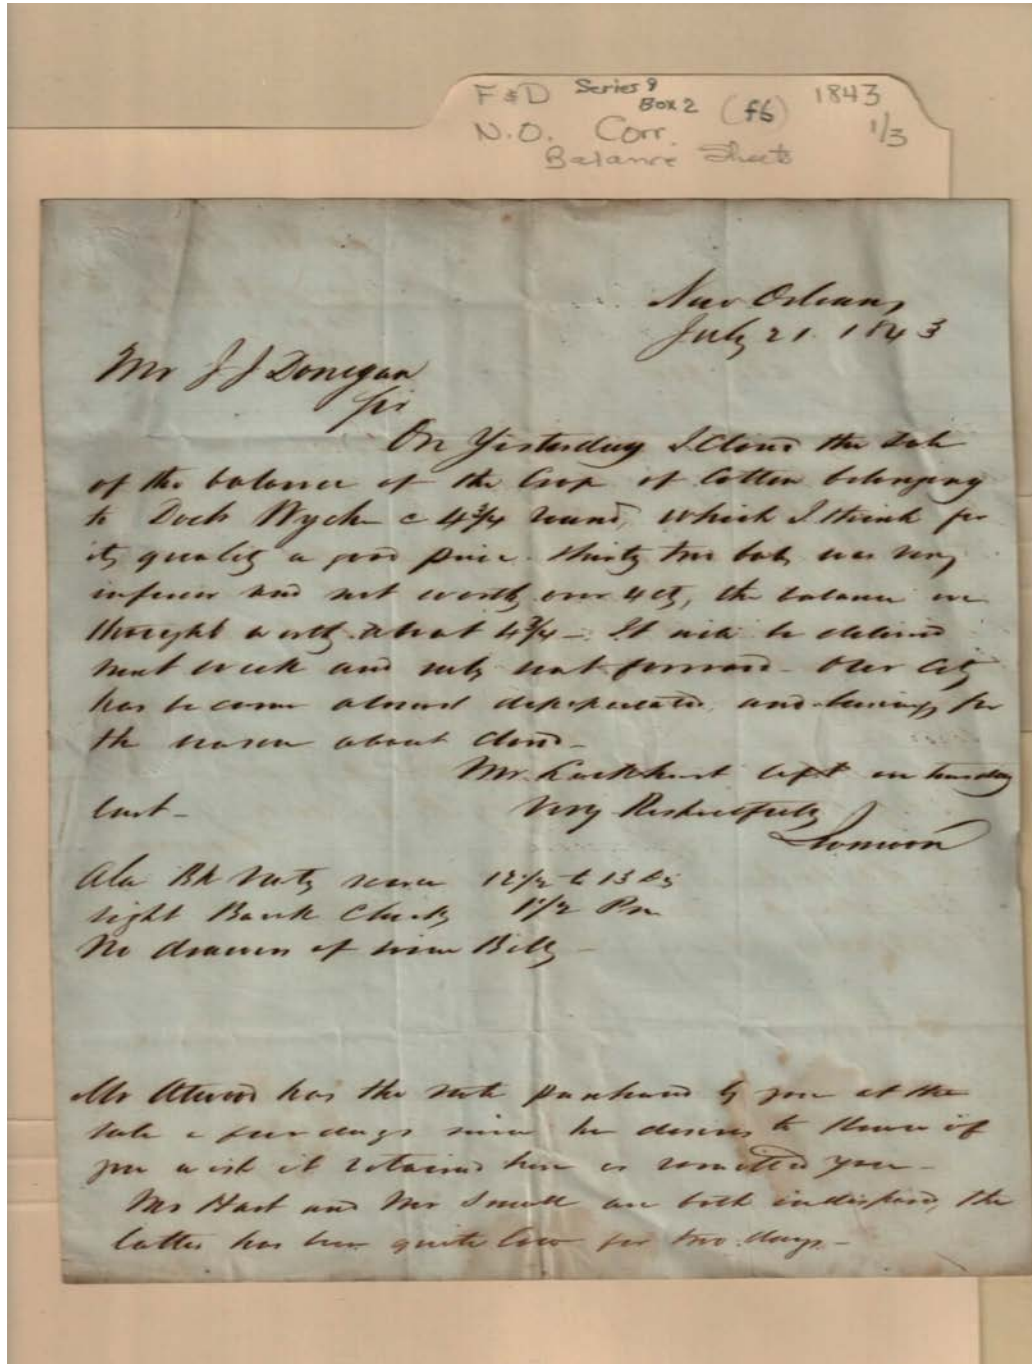 F & D Series 9 1843
Box 2 (f6) 1/3
N.O. Corr.
Balance Sheets
New Orleans
July 21. 1843
Mr J J Donegan
Sir
On Yesterday I Closed the Sale
of the balance of the Crop of Cotton belonging
to Doct Wyche @ 4¾ round, which I think for
its quality a good price. thirty two bals was very
inferior and not worth over 4 cts, the balance we
thought worth about 4¾ – It will be delivered
next week and sales sent forward – Our City
has become almost depopulated, and business for
the season about closed –
Mr. Lockhart left on tuesday
last – Very Respectfully
Ala Bk Notes 12½ to 13 Ds
sight Bank Checks 1½ Pm
No drawers of Bills –
Mr Atwood has the note purchased by you at the
sale a few days since he desires to know if
you wish it retained here or remitted you –
Mr Hart and Mr Small are both indisposed, the
latter has been quite low for two days –